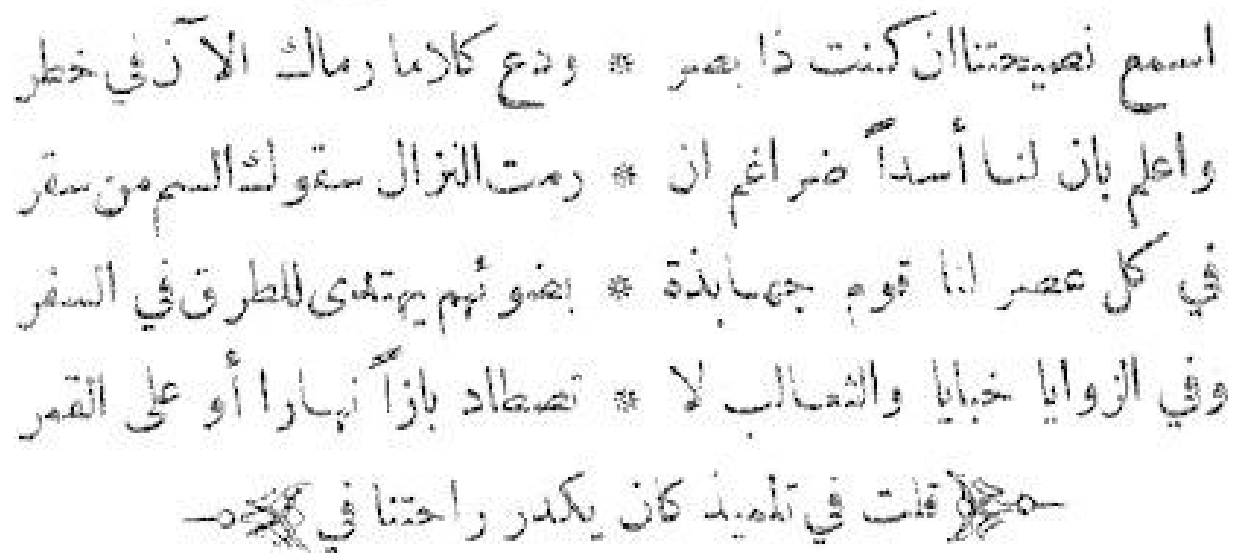 اسمع نصيحتنا ان كنت ذا بصر * ودع كلاما رماك الآن في خطر
واعلم بان لنا أسداً ضراغم ان * رمت النزال سقوك السم من سقر
في كل عصر لنا قوم جهابذة * بضوئهم يهتدى للطرق في السفر
وفي الزوايا خبايا والثعالب لا * تصطاد بازاً نهارا أو على القمر
قلت في تلميذ كان يكدر راحتنا في